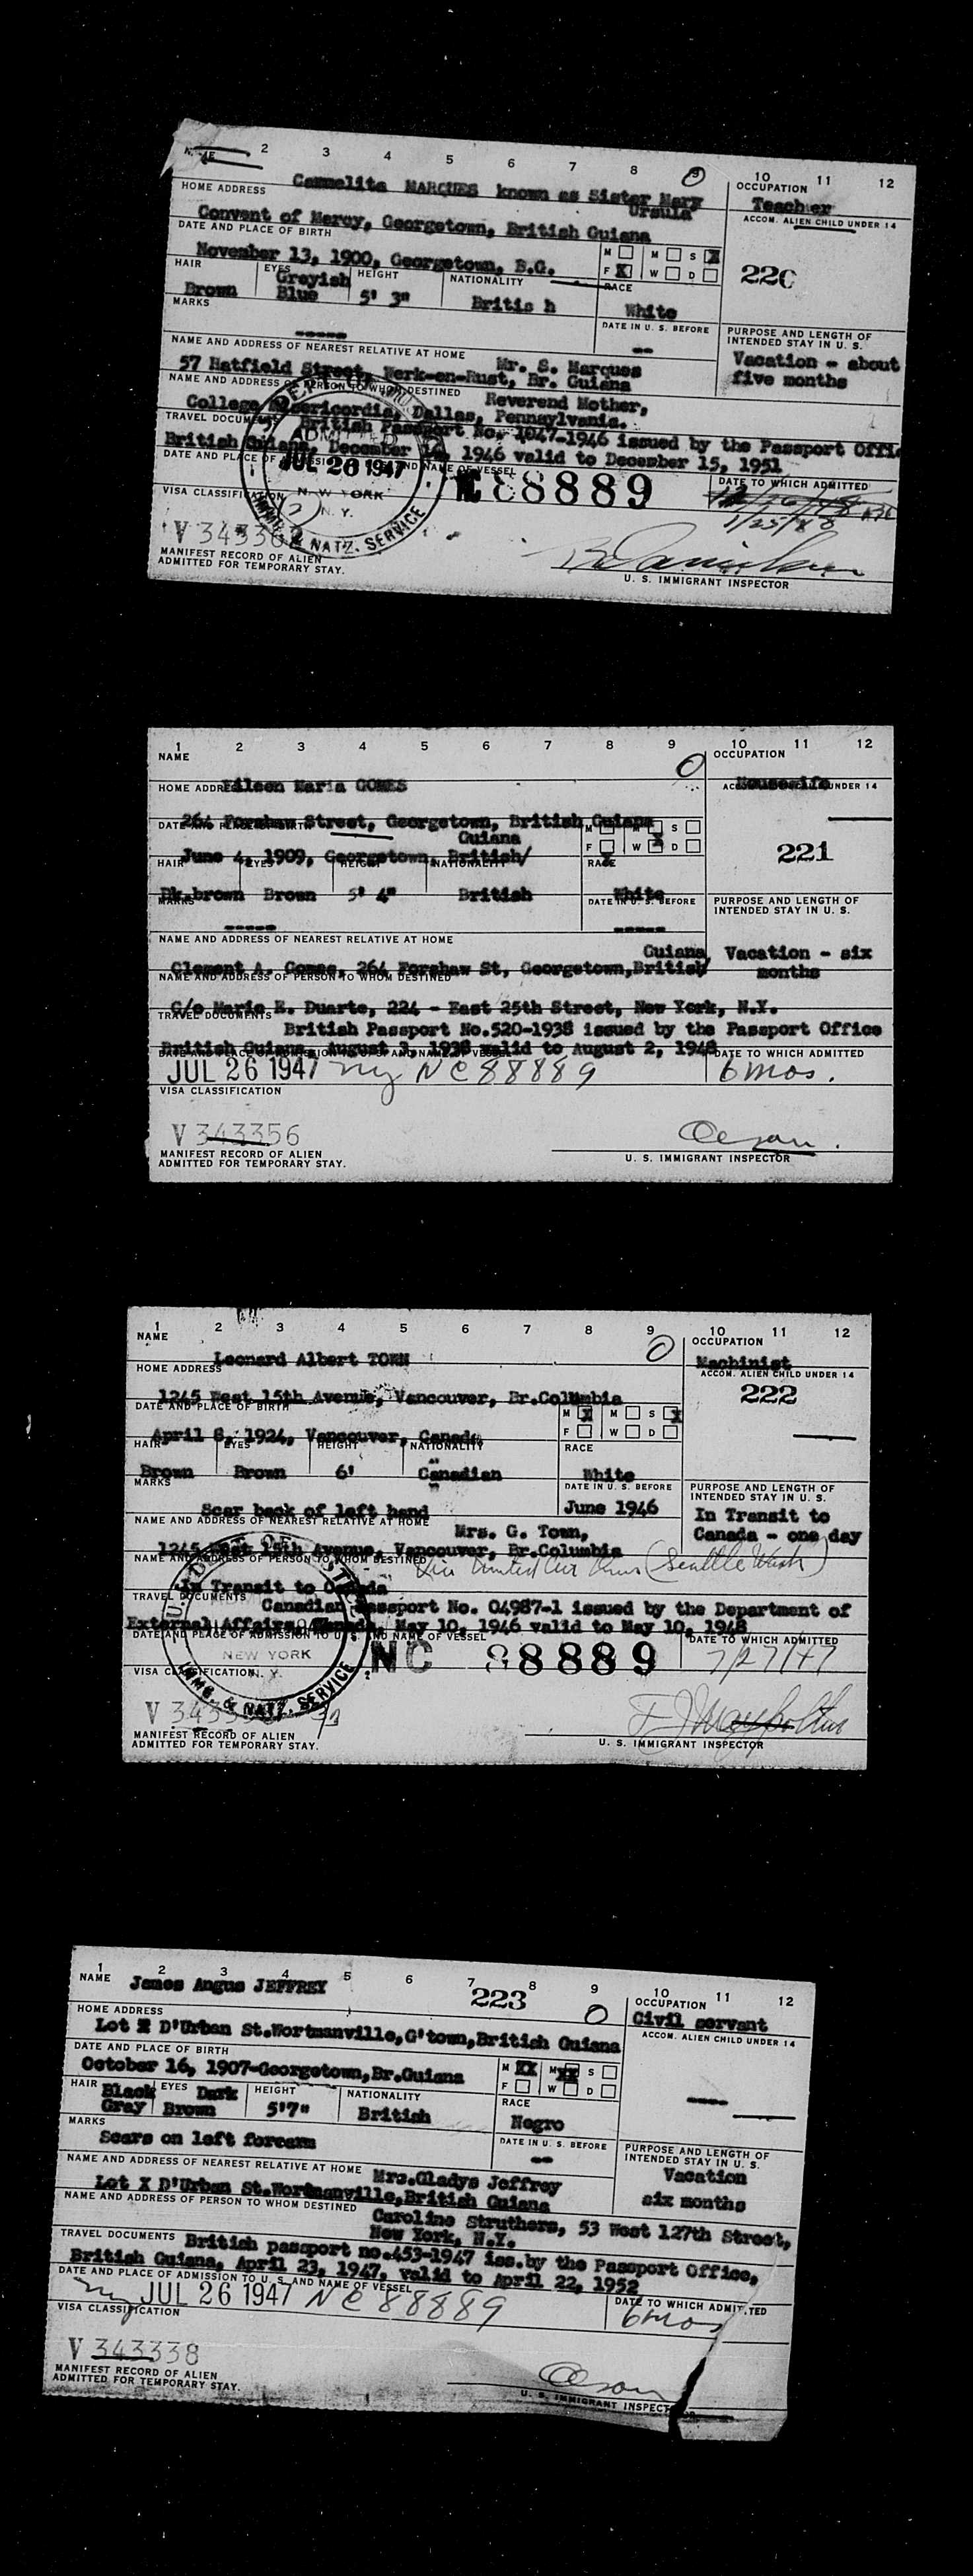 2 3 4 5 6 7 8 9 10 11 12
OCCUPATION
Carmelita MARQUES known as Sister Mary
Ursula
Teacher
HOME ADDRESS
ACCOM. ALIEN CHILD UNDER 14
Convent of Mercy, Georgetown, British Guiana
DATE AND PLACE OF BIRTH
M M S X
November 13, 1900, Georgetown, B.G.
F X W D
220
HAIR EYES HEIGHT NATIONALITY RACE
Brown Greyish
Blue 5' 3" Britis h White
MARKS
DATE IN U. S. BEFORE
PURPOSE AND LENGTH OF
INTENDED STAY IN U. S.
----- --
NAME AND ADDRESS OF NEAREST RELATIVE AT HOME
Vacation - about
five months
Mr. S. Marques
57 Hatfield Street, Werk-en-Rust, Br. Guiana
NAME AND ADDRESS OF PERSON TO WHOM DESTINED
Reverend Mother,
College Misericordia, Dallas, Pennsylvania.
TRAVEL DOCUMENTS
British Passport No. 1047-1946 issued by the Passport Offi
British Guiana, December 16, 1946 valid to December 15, 1951
DATE AND PLACE OF ADMISSION AND NAME OF VESSEL
DATE TO WHICH ADMITTED
ADMITTED
JUL 26 1947
NEW YORK
N. Y.
IMMG. & NATZ. SERVICE
88889
1/25/48
VISA CLASSIFICATION
V 34336
MANIFEST RECORD OF ALIEN
ADMITTED FOR TEMPORARY STAY.
U. S. IMMIGRANT INSPECTOR
1 2 3 4 5 6 7 8 9 10 11 12
NAME
OCCUPATION
Eileen Maria GOMES
Housewife
HOME ADDRESS
ACCOM. ALIEN CHILD UNDER 14
264 Forshaw Street, Georgetown, British Guiana
DATE AND PLACE OF BIRTH
M M X S
F W D
Guiana
June 4, 1909, Georgetown, British/
221
HAIR EYES HEIGHT NATIONALITY RACE
Dk.brown Brown 5' 4" British White
MARKS
DATE IN U. S. BEFORE
PURPOSE AND LENGTH OF
INTENDED STAY IN U. S.
----- -----
NAME AND ADDRESS OF NEAREST RELATIVE AT HOME
Guiana,
Clement A. Gomes, 264 Forshaw St, Georgetown,British/
Vacation - six
months
NAME AND ADDRESS OF PERSON TO WHOM DESTINED
C/o Marie E. Duarte, 224 - East 25th Street, New York, N.Y.
TRAVEL DOCUMENTS
British Passport No.520-1938 issued by the Passport Office
British Guiana, August 3, 1938 valid to August 2, 1948
DATE AND PLACE OF ADMISSION TO U. S. AND NAME OF VESSEL
DATE TO WHICH ADMITTED
JUL 26 1947 ny NC 88889 6 mos.
VISA CLASSIFICATION
V 343356
MANIFEST RECORD OF ALIEN
ADMITTED FOR TEMPORARY STAY.
U. S. IMMIGRANT INSPECTOR
1 2 3 4 5 6 7 8 9 10 11 12
NAME
OCCUPATION
Leonard Albert TOWN
Machinist
HOME ADDRESS
ACCOM. ALIEN CHILD UNDER 14
1245 West 15th Avenue, Vancouver, Br.Columbia
222
DATE AND PLACE OF BIRTH
M X M S X
F W D
April 8, 1924, Vancouver, Canada
HAIR EYES HEIGHT NATIONALITY RACE
Brown Brown 6' Canadian White
MARKS
DATE IN U. S. BEFORE
PURPOSE AND LENGTH OF
INTENDED STAY IN U. S.
Scar back of left hand June 1946
In Transit to
Canada - one day
NAME AND ADDRESS OF NEAREST RELATIVE AT HOME
Mrs. G. Town,
1245 West 15th Avenue, Vancouver, Br.Columbia
NAME AND ADDRESS OF PERSON TO WHOM DESTINED
via United Air Lines (Seattle Wash)
In Transit to Canada
TRAVEL DOCUMENTS
Canadian Passport No. 04987-1 issued by the Department of
External Affairs, Canada, May 10, 1946 valid to May 10, 1948
DATE AND PLACE OF ADMISSION TO U. S. AND NAME OF VESSEL
DATE TO WHICH ADMITTED
NEW YORK
N. Y.
IMMG. & NATZ. SERVICE
NC 88889
7/27/47
VISA CLASSIFICATION
MANIFEST RECORD OF ALIEN
ADMITTED FOR TEMPORARY STAY.
U. S. IMMIGRANT INSPECTOR
1 2 3 4 5 6 7 8 9 10 11 12
NAME
James Angus JEFFREY
223
OCCUPATION
Civil servant
HOME ADDRESS
ACCOM. ALIEN CHILD UNDER 14
Lot X D'Urban St.Wortmanville,G'town,British Guiana
DATE AND PLACE OF BIRTH
October 16, 1907-Georgetown,Br.Guiana
M XX M XX S
F W D
HAIR EYES HEIGHT NATIONALITY RACE
Black
Gray Dark
Brown 5'7" British Negro
MARKS
Scars on left forearm
DATE IN U. S. BEFORE
--
PURPOSE AND LENGTH OF
INTENDED STAY IN U. S.
Vacation
six months
NAME AND ADDRESS OF NEAREST RELATIVE AT HOME
Mrs.Gladys Jeffrey
Lot X D'Urban St.Wortmanville,British Guiana
NAME AND ADDRESS OF PERSON TO WHOM DESTINED
Caroline Struthers, 53 West 127th Street,
New York, N.Y.
TRAVEL DOCUMENTS
British passport no.453-1947 iss.by the Passport Office,
British Guiana, April 23, 1947, valid to April 22, 1952
DATE AND PLACE OF ADMISSION TO U. S. AND NAME OF VESSEL
DATE TO WHICH ADMITTED
ny JUL 26 1947 NC 88889 6 mos
VISA CLASSIFICATION
V 343338
MANIFEST RECORD OF ALIEN
ADMITTED FOR TEMPORARY STAY.
U. S. IMMIGRANT INSPECTOR